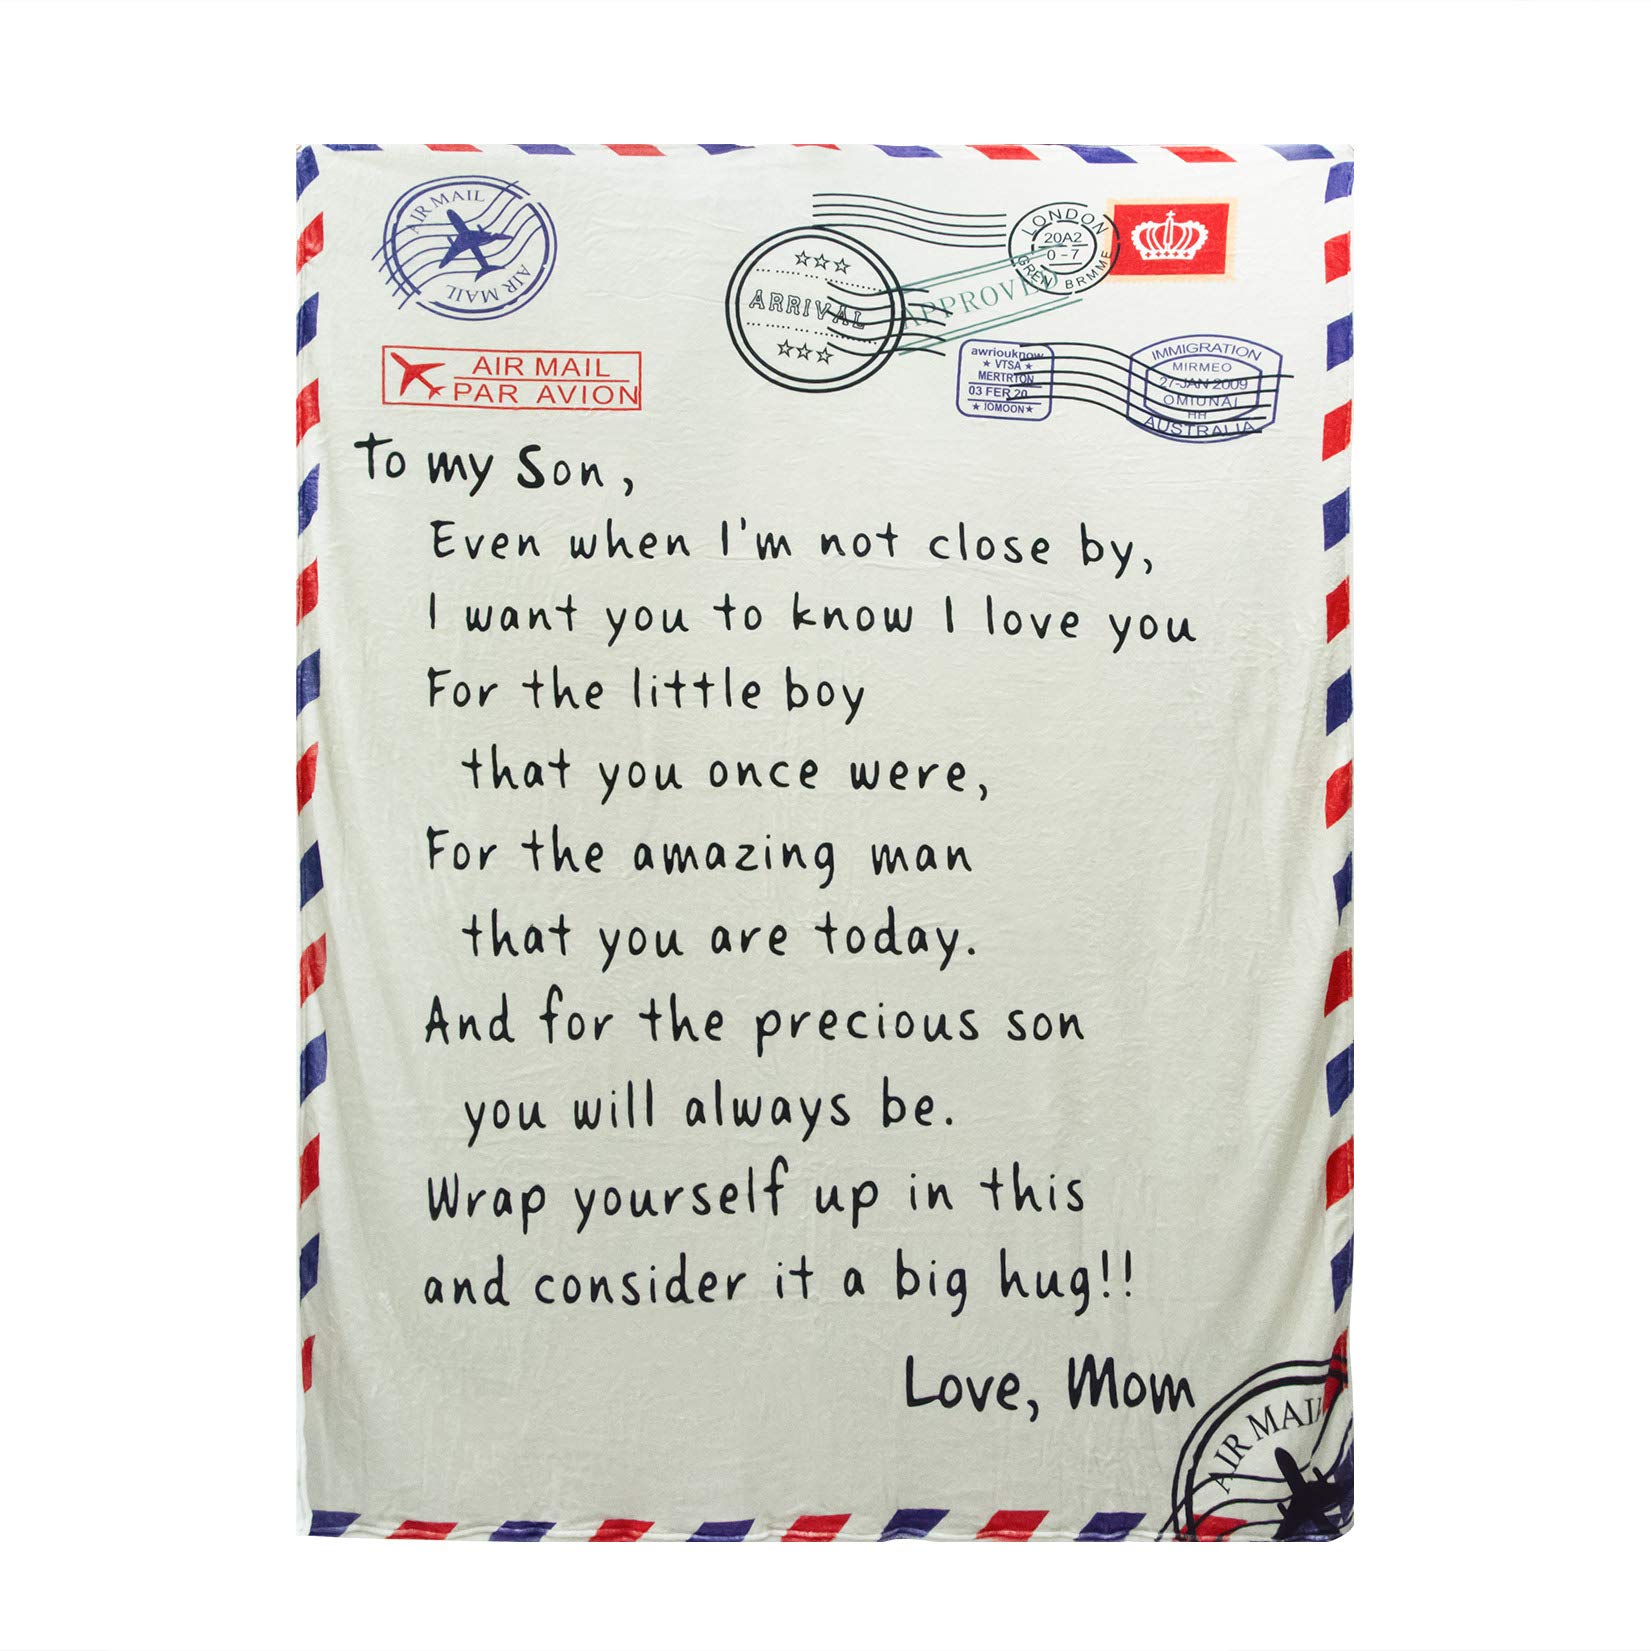 AIR MAIL
AIR MAIL
LONDON
20A2
0-7
GREN BRMME
ARRIVAL
APPROVED
AIR MAIL
PAR AVION
awriouknow
VTSA
MERTRTON
03 FER 20
IOMOON
IMMIGRATION
MIRMEO
27-JAN 2009
OMIUNAI
HH
AUSTRALIA
To my Son,
Even when I'm not close by,
I want you to know I love you
For the little boy
that you once were,
For the amazing man
that you are today.
And for the precious son
you will always be.
Wrap yourself up in this
and consider it a big hug!!
Love, Mom
AIR MAIL